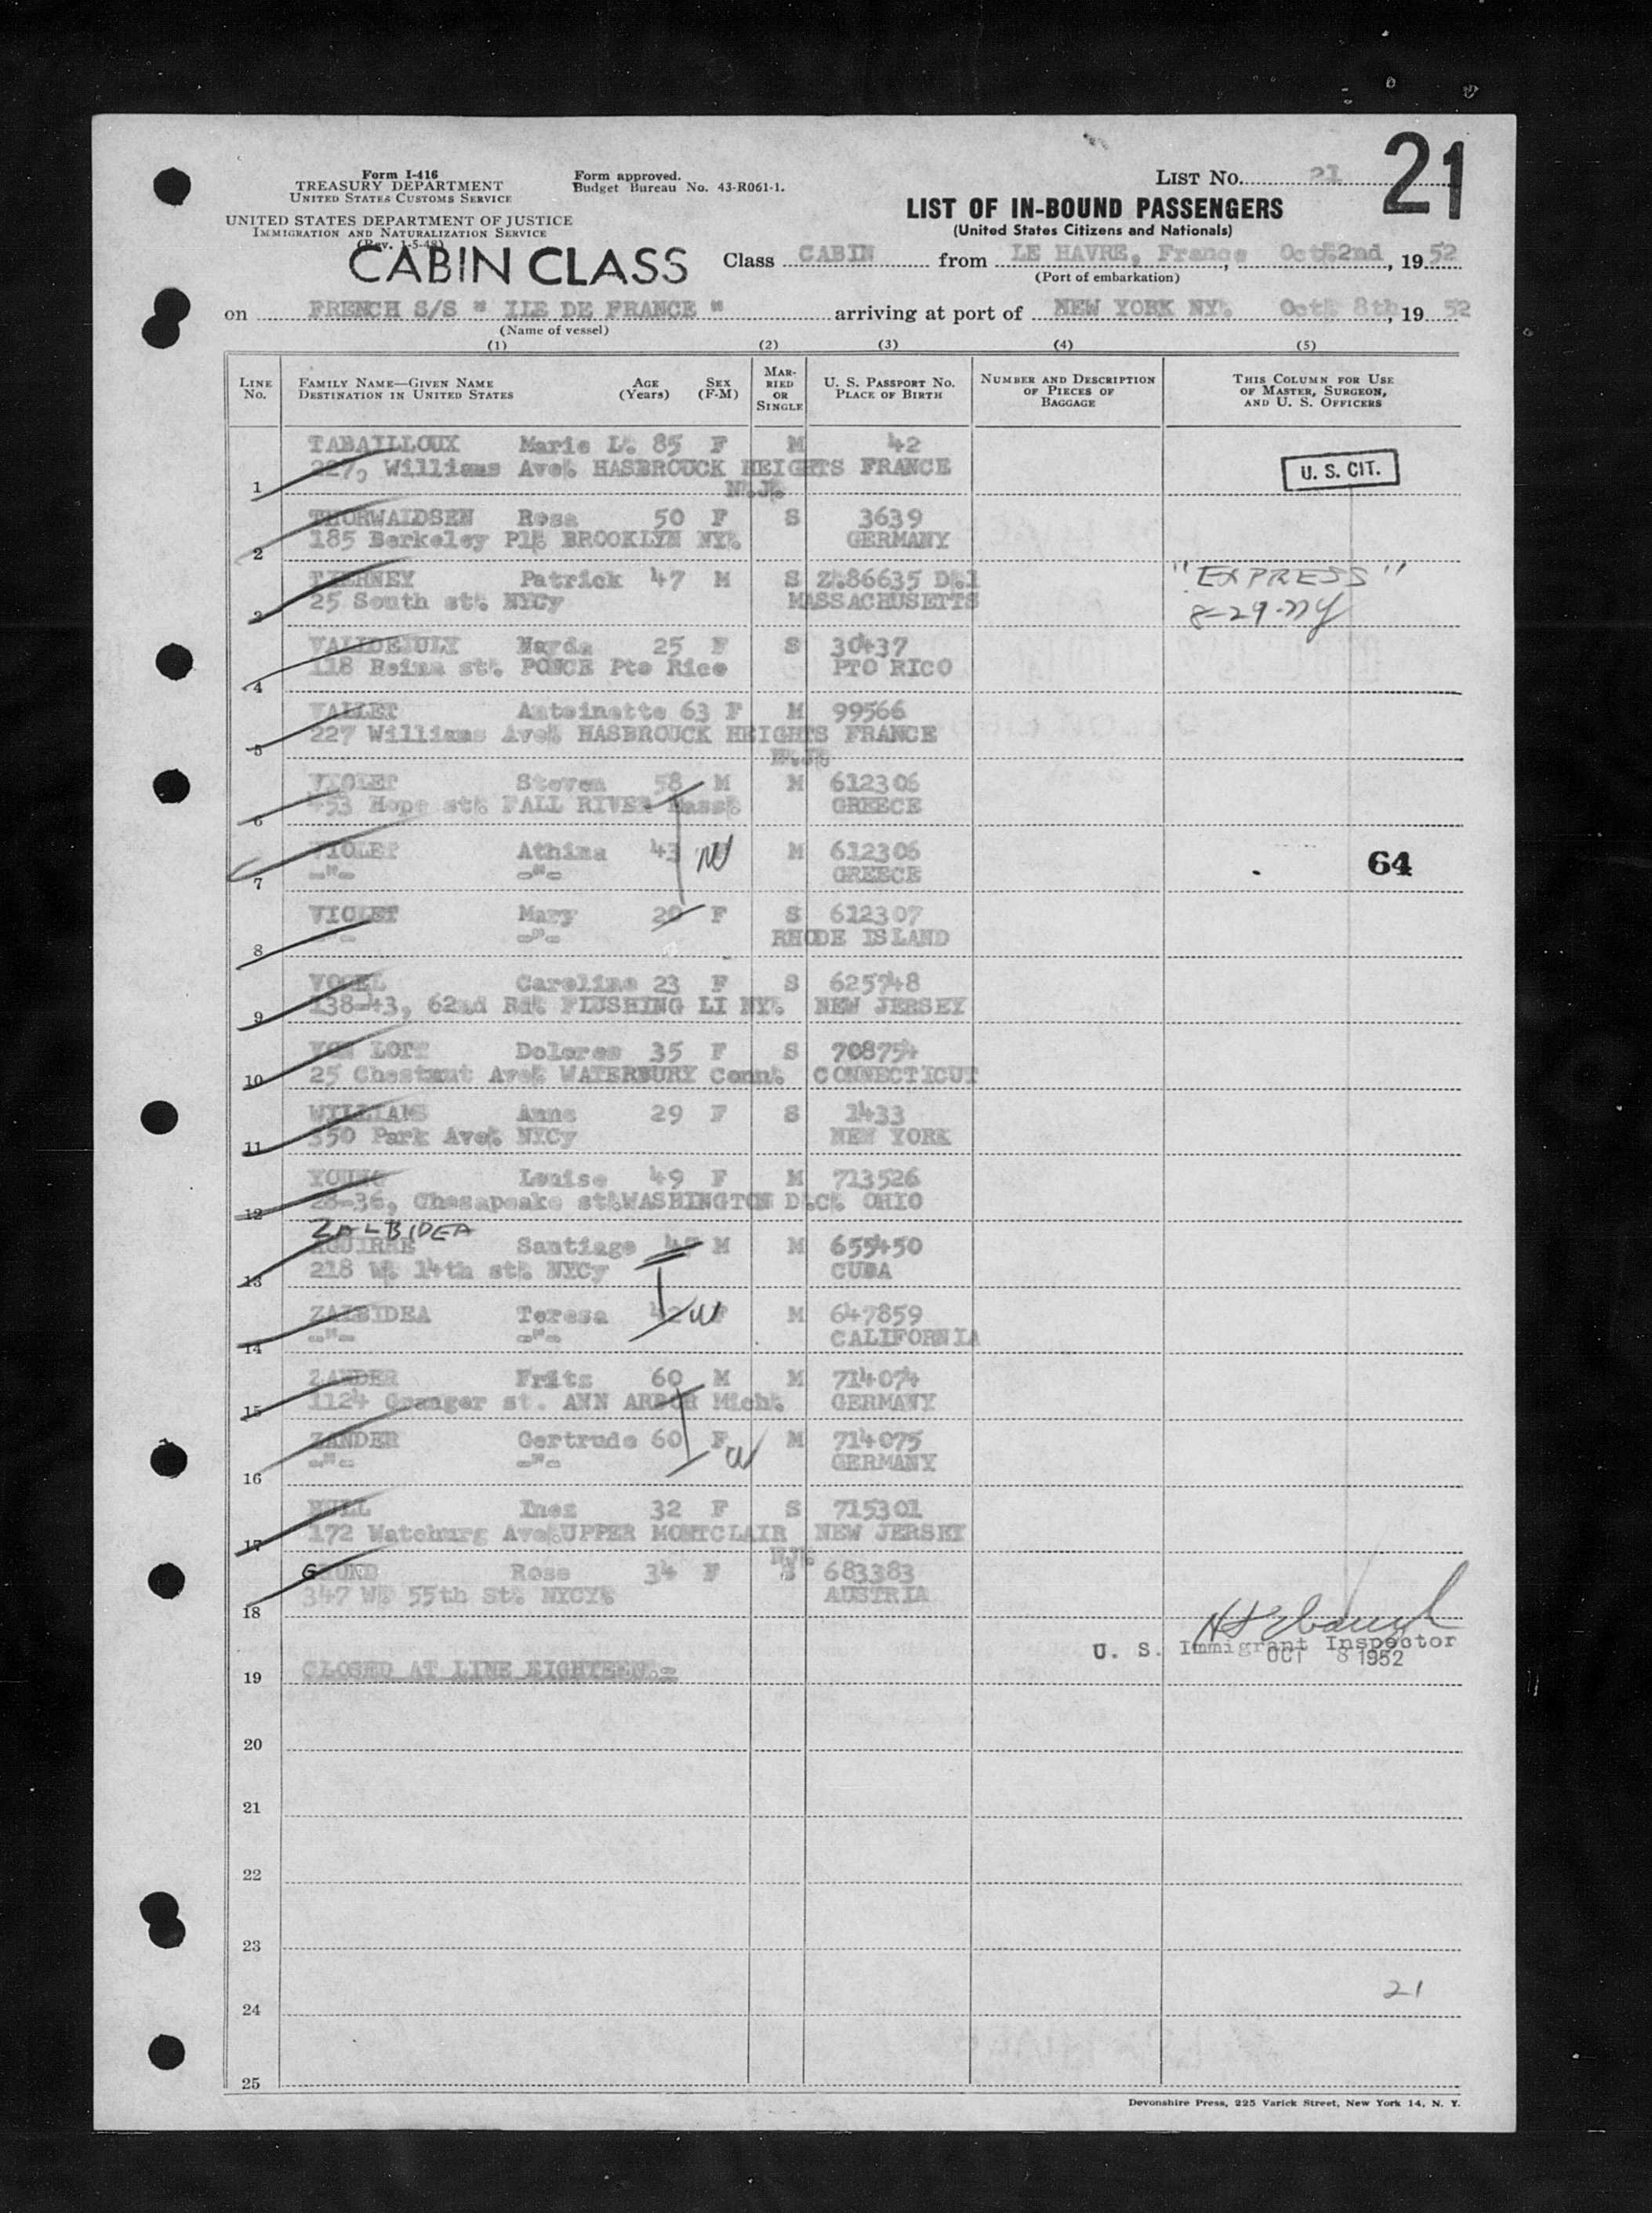 21
Form I-416
TREASURY DEPARTMENT
UNITED STATES CUSTOMS SERVICE
Form approved.
Budget Bureau No. 43-R061-1.
LIST NO. 21
UNITED STATES DEPARTMENT OF JUSTICE
IMMIGRATION AND NATURALIZATION SERVICE
(Rev. 1-5-48)
LIST OF IN-BOUND PASSENGERS
(United States Citizens and Nationals)
CABIN CLASS
Class CABIN from LE HAVRE, France, Oct. 2nd, 19 52
(Port of embarkation)
on FRENCH S/S " ILE DE FRANCE " arriving at port of NEW YORK NY. Oct. 8th, 19 52
(Name of vessel)
(1) (2) (3) (4) (5)
LINE No. FAMILY NAME—GIVEN NAME DESTINATION IN UNITED STATES AGE (Years) SEX (F-M) MARRIED OR SINGLE U. S. PASSPORT NO. PLACE OF BIRTH NUMBER AND DESCRIPTION OF PIECES OF BAGGAGE THIS COLUMN FOR USE OF MASTER, SURGEON, AND U. S. OFFICERS
TABAILLOUX Marie L. 85 F M 42
227, Williams Ave. HASBROUCK HEIGHTS FRANCE
U. S. CIT.
1 N.J.
THORWALDSEN Rosa 50 F S 3639
2 185 Berkeley Pl. BROOKLYN NY. GERMANY
TIERNEY Patrick 47 M S Z.86635 D.1 "EXPRESS"
3 25 South st. NYCy MASSACHUSETTS 8-29-ny
VALLDEJULY Nayda 25 F S 30437
4 118 Reina st. PONCE Pto Rico PTO RICO
VALLET Antoinette 63 F M 99566
5 227 Williams Ave. HASBROUCK HEIGHTS FRANCE
N.J.
VIOLET Steven 58 M M 612306
6 453 Hope st. FALL RIVER Mass. GREECE
VIOLET Athina 43 W M 612306
7 -"- -"- GREECE
64
VIOLET Mary 20 F S 612307
8 -"- -"- RHODE ISLAND
VOGEL Caroline 23 F S 625748
9 138-43, 62nd Rd. FLUSHING LI NY. NEW JERSEY
VON LOTT Dolores 35 F S 708754
10 25 Chestnut Ave. WATERBURY Conn. CONNECTICUT
WILLIAMS Anne 29 F S 1433
11 350 Park Ave. NYCy NEW YORK
YOUNG Louise 49 F M 713526
12 28-36, Chesapeake st. WASHINGTON D.C. OHIO
ZALBIDEA
AGUIRRE Santiago 47 M M 655450
13 218 W. 14th st. NYCy CUBA
ZALBIDEA Teresa 42 W F M 647859
14 -"- -"- CALIFORNIA
ZANDER Fritz 60 M M 714074
15 1124 Granger st. ANN ARBOR Mich. GERMANY
ZANDER Gertrude 60 F W M 714075
16 -"- -"- GERMANY
HULL Inez 32 F S 715301
17 172 Watchung Ave. UPPER MONTCLAIR NEW JERSEY
NJ.
GRUND Rose 34 F S 683383
18 347 W. 55th St. NYCY. AUSTRIA
U. S. Immigrant Inspector
OCT 8 1952
19 CLOSED AT LINE EIGHTEEN.-
20
21
22
23
21
24
25
Devonshire Press, 225 Varick Street, New York 14, N. Y.